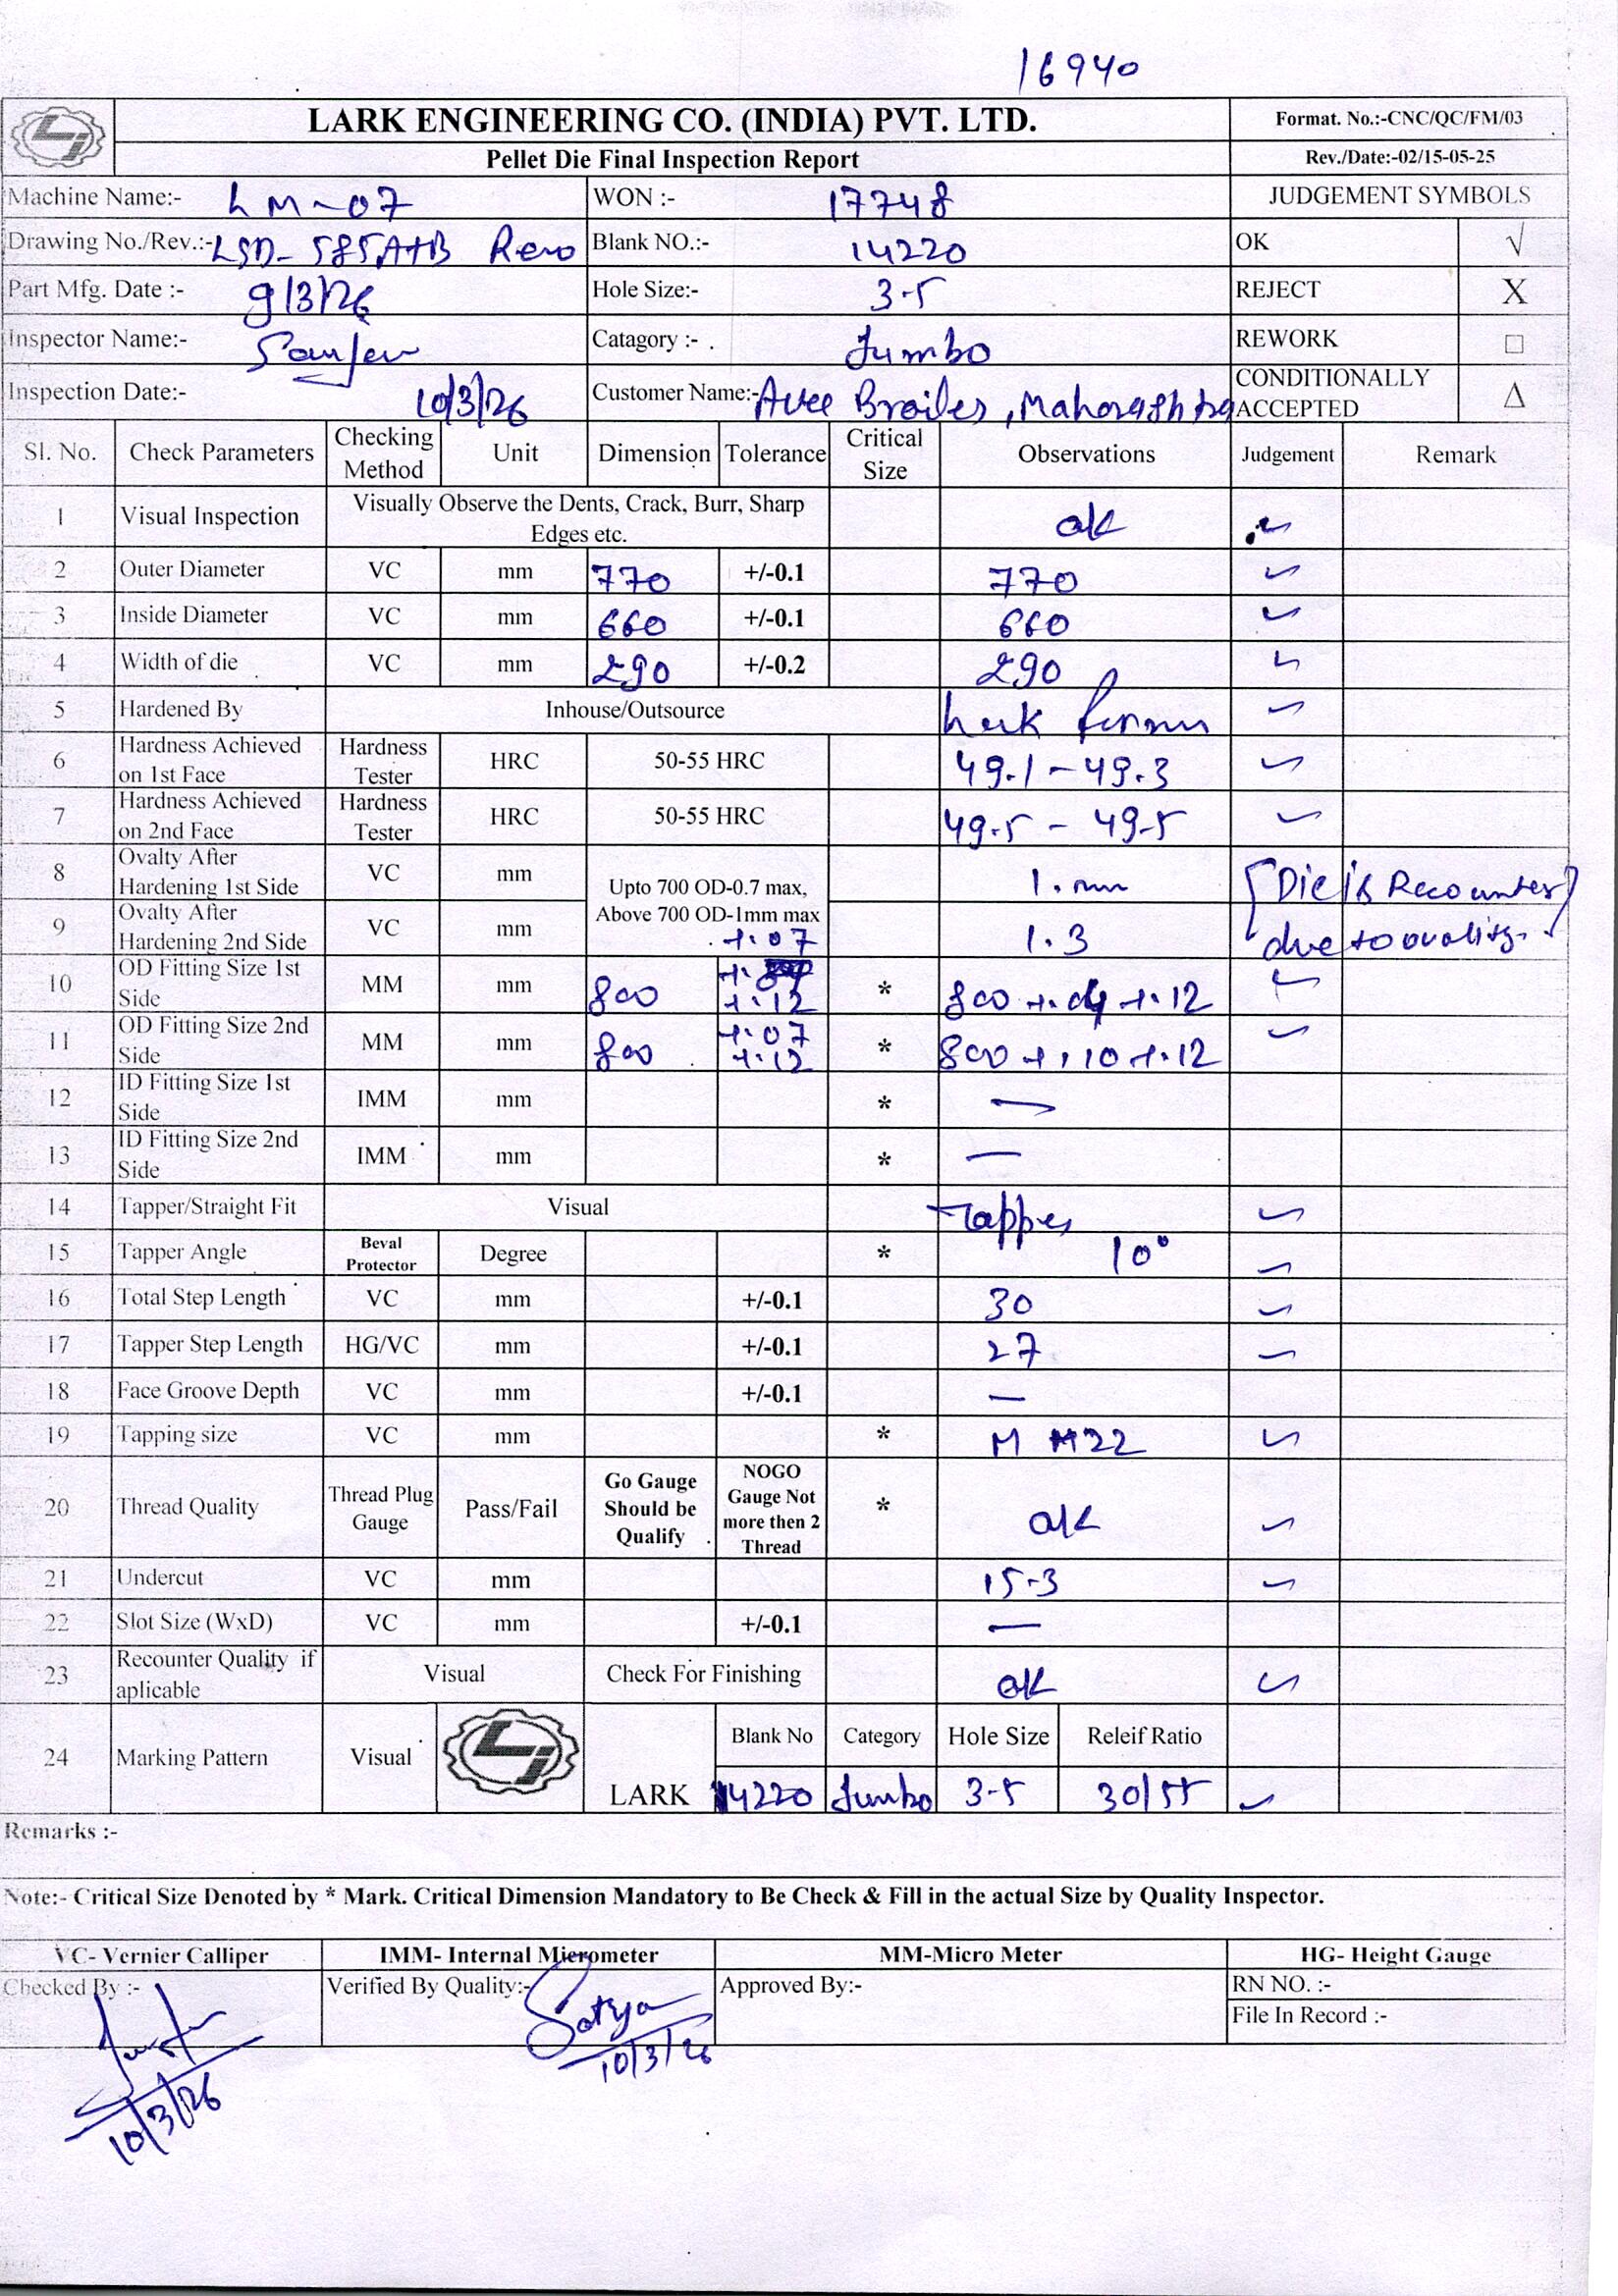 16940
LARK ENGINEERING CO. (INDIA) PVT. LTD.
Format. No.:-CNC/QC/FM/03
Pellet Die Final Inspection Report
Rev./Date:-02/15-05-25
Machine Name:- LM-07 WON :- 17748 JUDGEMENT SYMBOLS
Drawing No./Rev.:- LSD-585A+B Rev0 Blank NO.:- 14220 OK √
Part Mfg. Date :- 9/3/26 Hole Size:- 3-5 REJECT X
Inspector Name:- Catagory :- Jumbo REWORK □
Inspection Date:- 10/3/26 Customer Name:- Avee Broiler, Maharashtra CONDITIONALLY ACCEPTED Δ
Sl. No. Check Parameters Checking Method Unit Dimension Tolerance Critical Size Observations Judgement Remark
1 Visual Inspection Visually Observe the Dents, Crack, Burr, Sharp Edges etc. ok ✓
2 Outer Diameter VC mm 770 +/-0.1 770 ✓
3 Inside Diameter VC mm 660 +/-0.1 660 ✓
4 Width of die VC mm 290 +/-0.2 290 ✓
5 Hardened By Inhouse/Outsource ✓
6 Hardness Achieved on 1st Face Hardness Tester HRC 50-55 HRC 49.1-49.3 ✓
7 Hardness Achieved on 2nd Face Hardness Tester HRC 50-55 HRC 49.5 - 49.5 ✓
8 Ovalty After Hardening 1st Side VC mm Upto 700 OD-0.7 max, Above 700 OD-1mm max 1.mm Die is Recounter
9 Ovalty After Hardening 2nd Side VC mm 1.3 due to ovality.
10 OD Fitting Size 1st Side MM mm 800 +.07 +.12 * 800 +.12 ✓
11 OD Fitting Size 2nd Side MM mm 800 +.07 +.12 * 800 +.10 +.12 ✓
12 ID Fitting Size 1st Side IMM mm * —
13 ID Fitting Size 2nd Side IMM mm * —
14 Tapper/Straight Fit Visual Tapper ✓
15 Tapper Angle Beval Protector Degree * 10° ✓
16 Total Step Length VC mm +/-0.1 30 ✓
17 Tapper Step Length HG/VC mm +/-0.1 27 ✓
18 Face Groove Depth VC mm +/-0.1 —
19 Tapping size VC mm * M M22 ✓
20 Thread Quality Thread Plug Gauge Pass/Fail Go Gauge Should be Qualify NOGO Gauge Not more then 2 Thread * ok ✓
21 Undercut VC mm 15-3 ✓
22 Slot Size (WxD) VC mm +/-0.1 —
23 Recounter Quality if aplicable Visual Check For Finishing ok ✓
24 Marking Pattern Visual LARK Blank No Category Hole Size Releif Ratio
14220 Jumbo 3-5 30/55 ✓
Remarks :-
Note:- Critical Size Denoted by * Mark. Critical Dimension Mandatory to Be Check & Fill in the actual Size by Quality Inspector.
VC- Vernier Calliper IMM- Internal Micrometer MM-Micro Meter HG- Height Gauge
Checked By :- Verified By Quality:- Satya Approved By:- RN NO. :-
File In Record :-
10/3/26
10/3/26